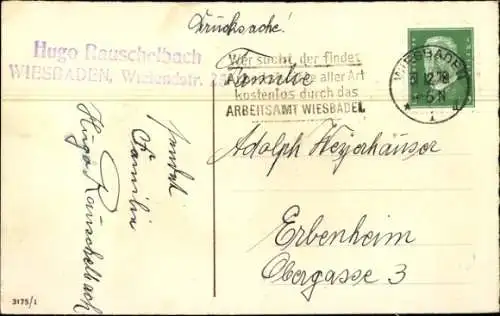 Drucksache!
Hugo Rauschelbach
WIESBADEN, Wielandstr.
Wer sucht, der findet
aller Art
kostenlos durch das
ARBEITSAMT WIESBADEN
WIESBADEN
12.28
Familie
Adolph Weyerhäuser
Erbenheim
Obergasse 3
sendet
Familie
Hugo Rauschelbach
3175/1